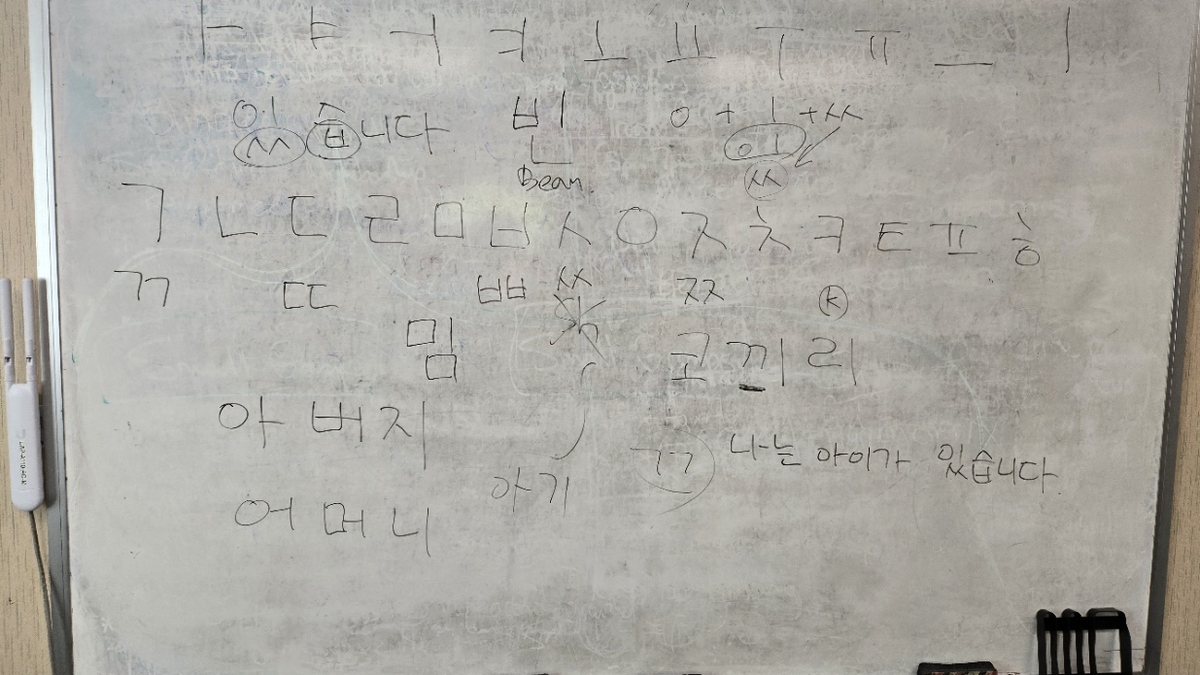 ㅏ ㅑ ㅓ ㅕ ㅗ ㅛ ㅜ ㅠ ㅡ ㅣ
있습니다 빈 ㅇ + ㅣ + ㅆ
이
ㅆ
Bean
ㄱ ㄴ ㄷ ㄹ ㅁ ㅂ ㅅ ㅇ ㅈ ㅊ ㅋ ㅌ ㅍ ㅎ
ㄲ ㄸ ㅃ ㅆ ㅉ K
밈 코끼리
아버지
ㄲ 나는 아이가 있습니다.
아기
어머니